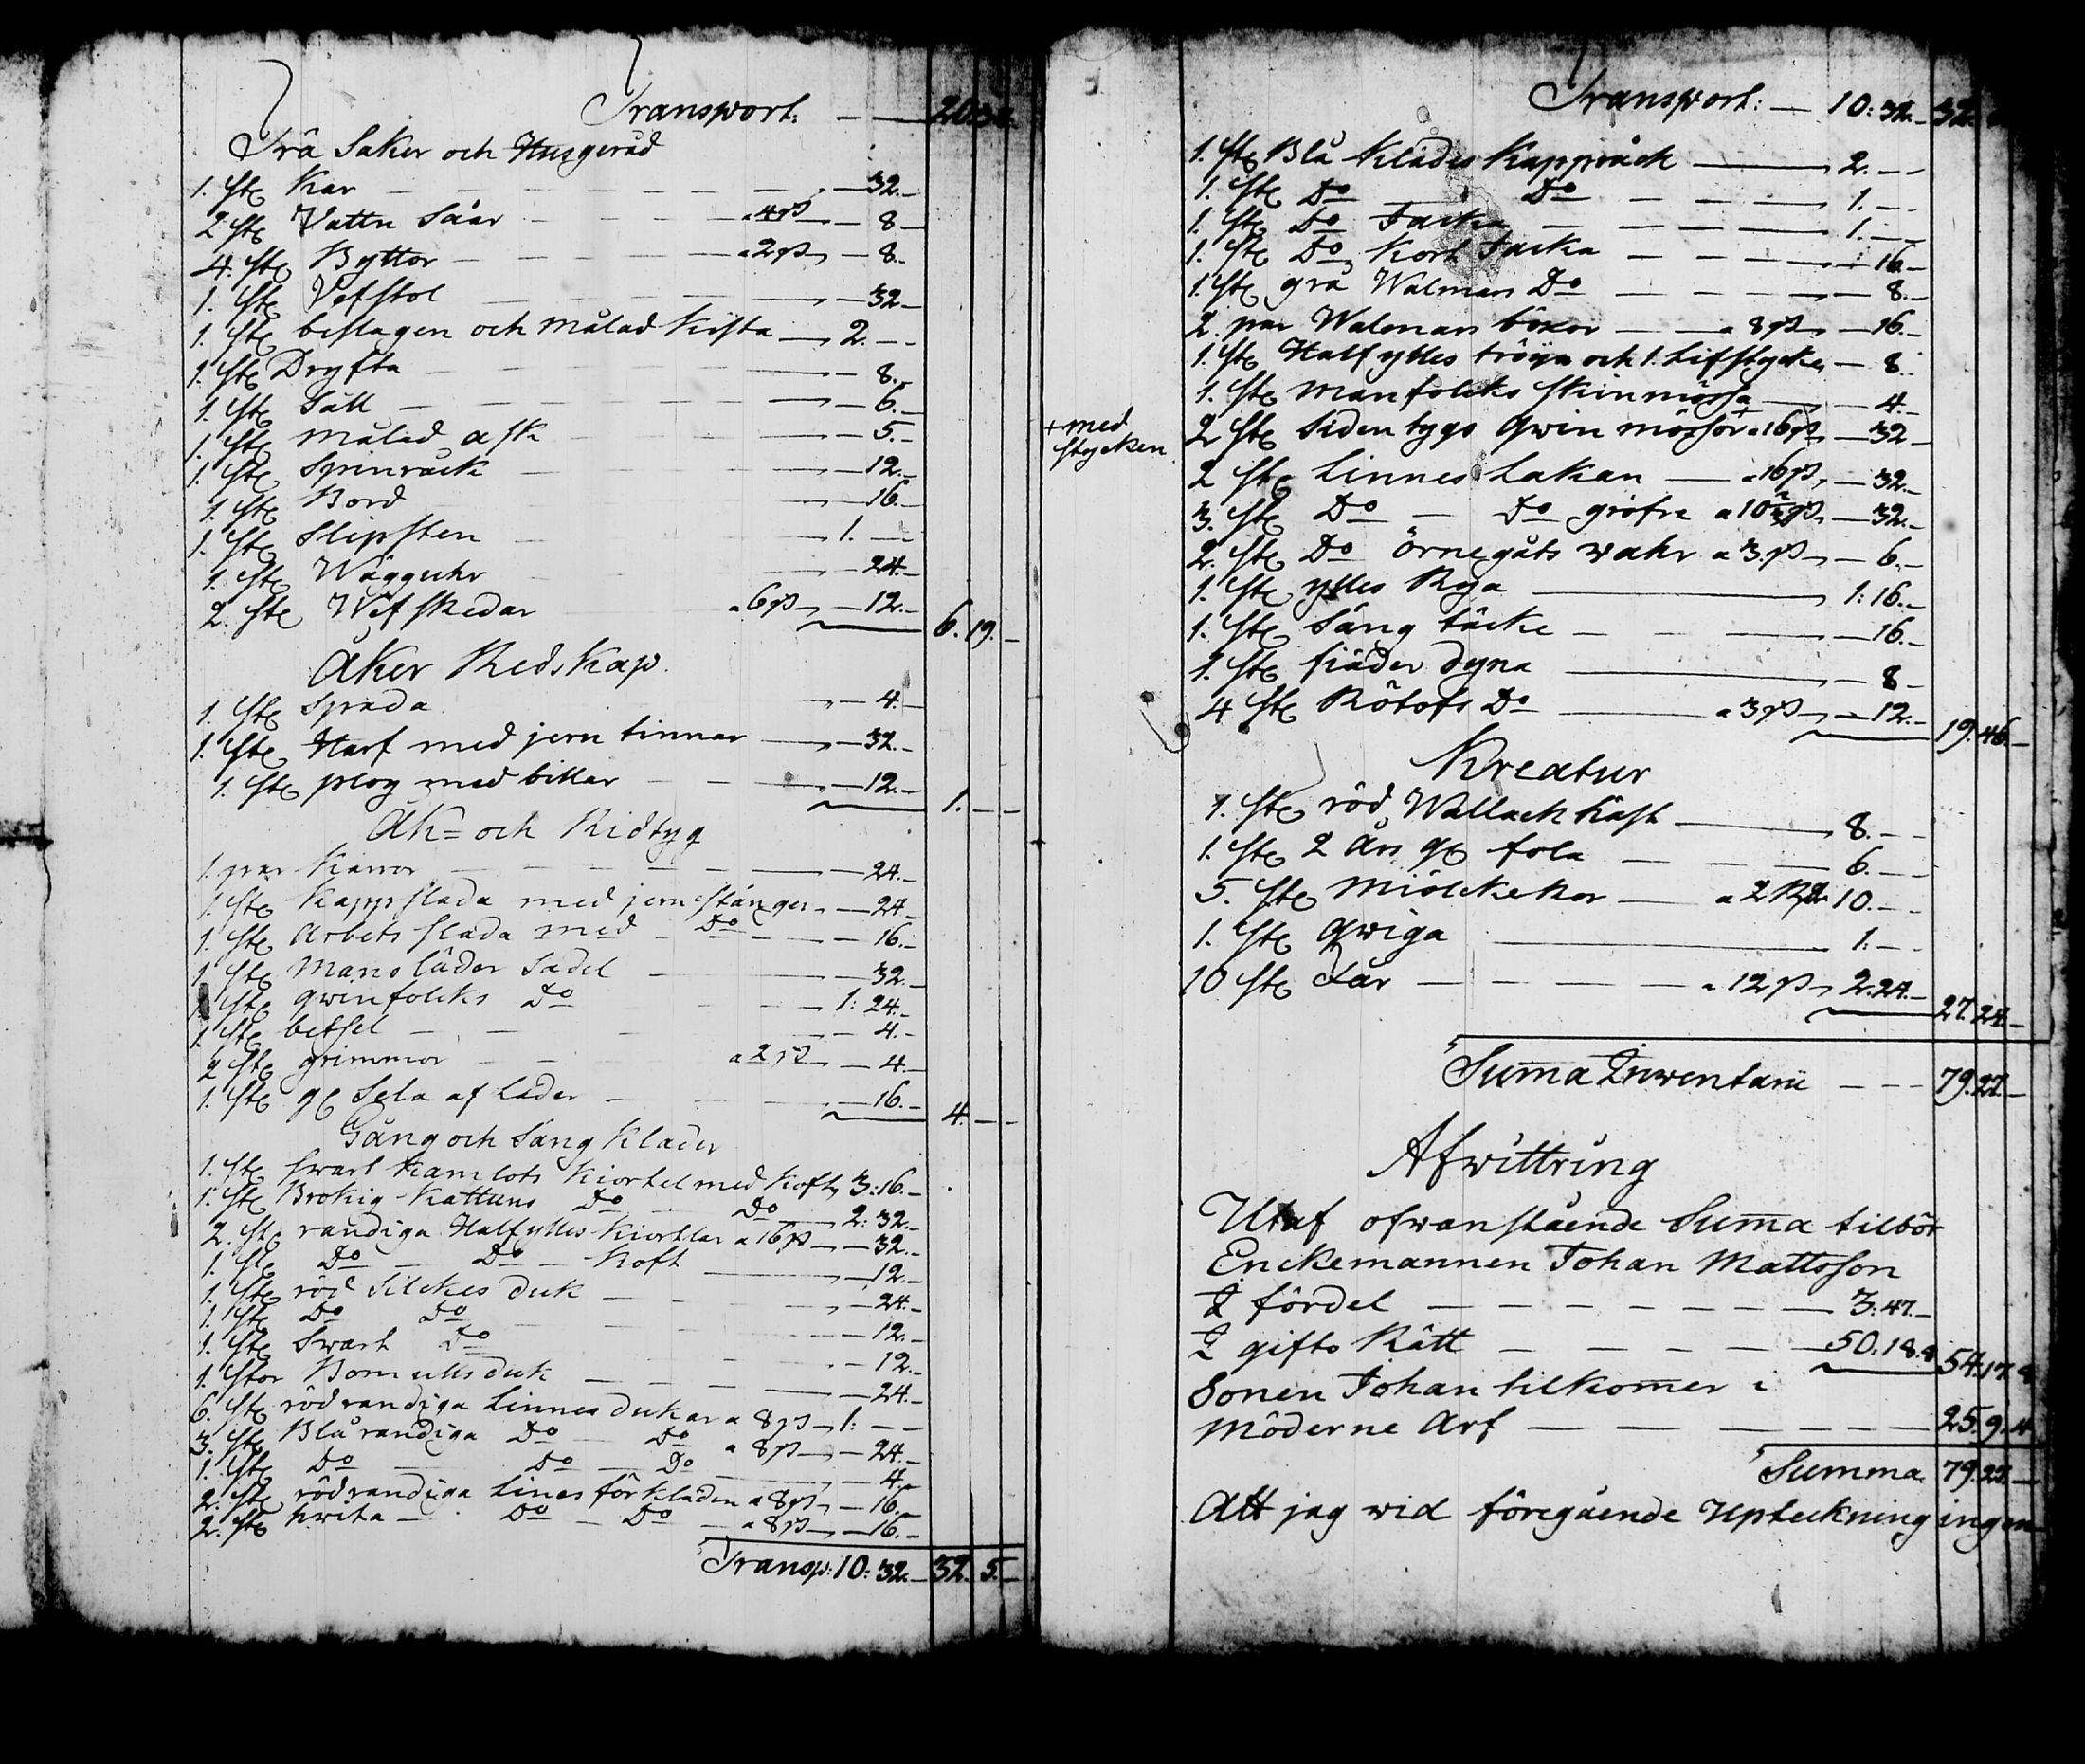 Transport: — — 20.34.
Trä Saker och Husgeråd
1. st: Kar — — 32.—
2 st: Vattu Såar — a 4 ß — 8 —
4. st: Byttor — a 2 ß — 8.—
1. st: Vefstol — — 32 —
1. st: beslagen och målad Kista — 2. — —
1. st: Dryfta — — 8.—
1. st: Såll — — 6.—
1. st: målad ask — — 5.—
1. st: Spinråck — — 12.—
1. st: Bord — — 16.—
1. st: Slipsten — 1. —
1. st: Wägguhr — — 24.—
2. st: Wäfskedar a 6 ß — 12.— 6. 19. —
Åker Redskap.
1. st: Spada — 4.—
1. st: Harf med jern tinnar — 32.—
1. st: plog med billar — 12.— 1. — —
Åk= och Ridtyg
1. par Kärror — — 24.—
1. st: Kappslada med jernstänger — 24.—
1. st: Arbets slada med Do — — 16.—
1 st: Mans läder Sadel — — 32.—
1 st: qwinfolcks Do — 1: 24.—
1. st: betsel — — 4.—
2 st: grimmor — a 2 ß — 4.—
1. st: gl Sela af läder — 16.— 4. — —
Gång och Säng Kläder
1. st: Swart Kamlots Kiortel med Koft, 3:16.—
1. st: Brokig Kattuns Do Do — 2: 32.—
2. st: randiga Halfylles Kiortlar a 16 ß — 32.—
1. st: Do — Do — Koft — 12.—
1. st: röd Silckes duk — — 24.—
1. st: Do Do — — 12.—
1. st: Swart Do — — 12.—
1. stor Bomulls duk — — 24.—
6. st: rödrandiga Linnes dukar a 8 ß — 1: — —
3. st: Blå randiga Do Do a 8 ß — 24.—
1. st: Do — Do — Do — 4.—
2. st: rödrandiga Lines förkläden a 8 ß — 16.—
2. st: hvita — Do — Do — a 8 ß — 16.—
Transp: 10: 32.— 32. 5.—
Transport: — 10: 32.— 32.
1. st: Blå Klädes Kappråck — 2. — —
1. st: Do — Do — — 1. —
1. st: Do Jacka — — 1. —
1. st: Do Kort Jacka — — 16.—
1. st: grå Walmars Do — — 8.—
2. par Walmars böxor — a 8 ß — 16.—
1. st: Halfylles tröya och 1. Lifstycke — 8.
1. st: manfolcks skinmössa — 4.—
+ med
stycken
2 st: Siden tygs qwin mössor + a 16 ß — 32 —
2 st: Linnes Lakan — a 16 ß, — 32.—
3. st: Do — Do gröfre a 10 2/3 ß — 32.—
2. st: Do örnegåts wahr a 3 ß — 6.—
1. st: ylles Rya — 1: 16.—
1. st: Säng täcke — — 16.—
1. st: fiäder dyna — 8 —
4 st: Rötofs Do — a 3 ß — 12.— 19. 46.—
Kreatur
1. st: röd Wallach häst — 8. — —
1. st: 2 års gl fola — — 6. — —
5. st: miölckekor — a 2 Rdr 10. — —
1. st: qwiga — 1. — —
10 st: Får — — a 12 ß — 2.24.— 27. 24.—
Suma Inwentarii — — — 79.27.—
Afwittring
Utaf ofwanstående Suma tilbör
Enckemannen Johan Mattsson
I fördel — — 3:47.—
I gifto Rätt — — 50.18.8 54.17.8
Sonen Johan tilkomer i
Möderne Arf — — 25.9.4
Summa 79.27.—
Att jag vid föregående Upteckning ingen